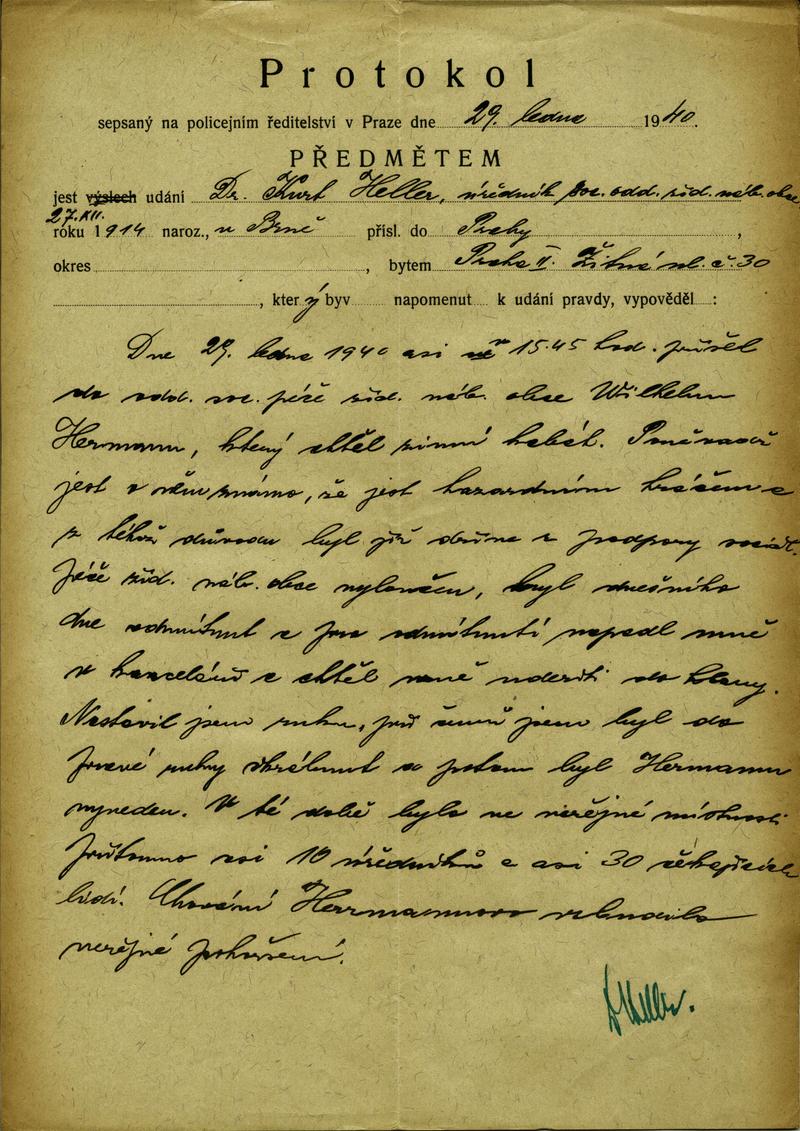 Protokol
sepsaný na policejním ředitelství v Praze dne 29. ledna 1940.
PŘEDMĚTEM
jest výslech udání Dr. Kurt Heller, úředník soc. odd. žid. náb. obce
27.XII.
roku 1914 naroz., v Brně přísl. do Prahy ,
okres , bytem Praha II. Žitná ul. č. 30
, který byv napomenut k udání pravdy, vypověděl :
Dne 29. ledna 1940 asi v 15.45 hod. přišel
do odd. soc. péče žid. náb. obce Wilhelm
Hermann, který chtěl zimní kabát. Poněvadž
jest o něm známo, že jest hazardním hráčem a
z téhož důvodu byl již dříve z podpory sociál.
péče žid. náb. obce vyloučen, byl dnešního
dne odmítnut a po odmítnutí napadl mně
v kanceláři a chtěl mně udeřiti do hlavy.
Nastavil jsem ruku, při čemž jsem byl do
pravé ruky škrábnut a potom byl Hermann
vyveden. V té době bylo ve veřejné místnosti
přítomno asi 10 úředníků a asi 30 čekajících
lidí. Chování Herrmannovo vzbudilo
veřejné pohoršení.
DrHeller.